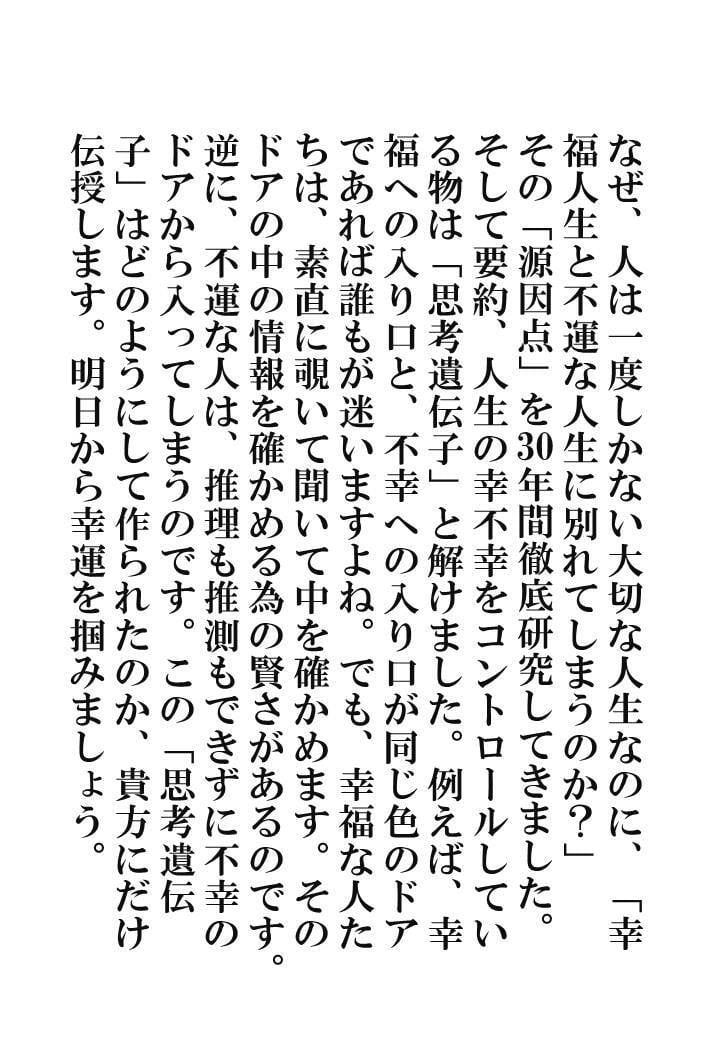 なぜ、人は一度しかない大切な人生なのに、「幸
福人生と不運な人生に別れてしまうのか？」
その「源因点」を30年間徹底研究してきました。
そして要約、人生の幸不幸をコントロールしてい
る物は「思考遺伝子」と解けました。例えば、幸
福への入り口と、不幸への入り口が同じ色のドア
であれば誰もが迷いますよね。でも、幸福な人た
ちは、素直に覗いて聞いて中を確かめます。その
ドアの中の情報を確かめる為の賢さがあるのです。
逆に、不運な人は、推理も推測もできずに不幸の
ドアから入ってしまうのです。この「思考遺伝
子」はどのようにして作られたのか、貴方にだけ
伝授します。明日から幸運を掴みましょう。